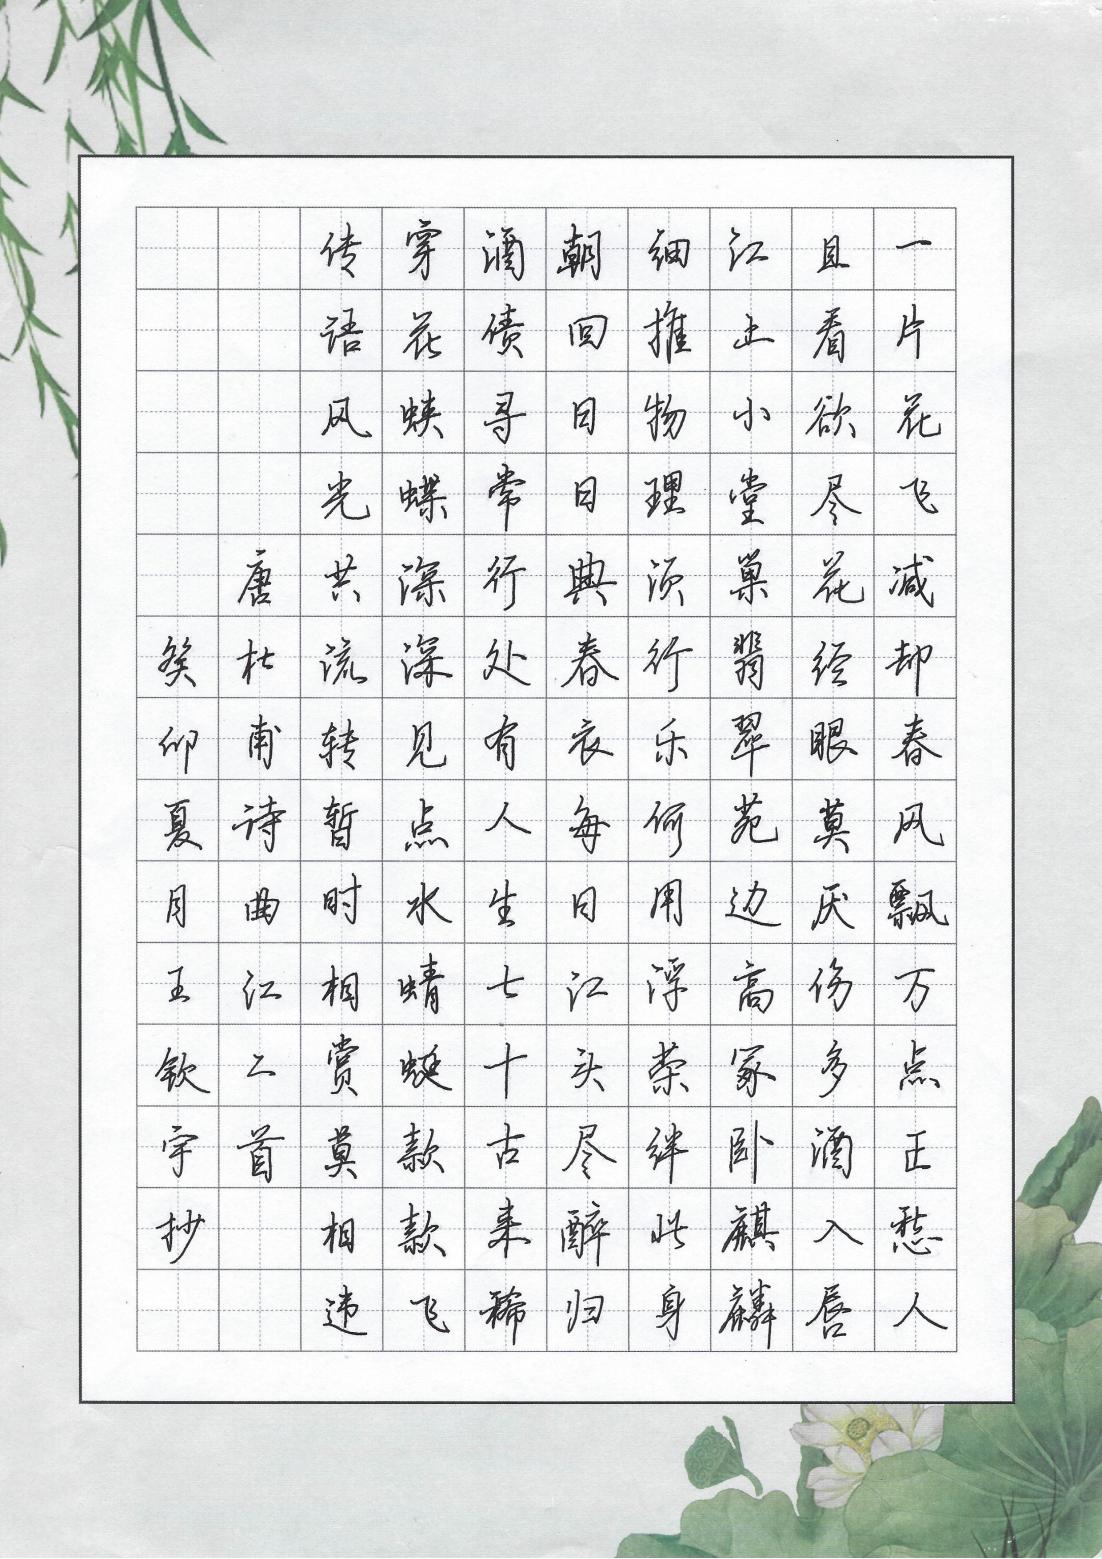 一片花飞减却春风飘万点正愁人
且看欲尽花经眼莫厌伤多酒入唇
江上小堂巢翡翠苑边高冢卧麒麟
细推物理须行乐何用浮荣绊此身
朝回日日典春衣每日江头尽醉归
酒债寻常行处有人生七十古来稀
穿花蛱蝶深深见点水蜻蜓款款飞
传语风光共流转暂时相赏莫相违
唐杜甫诗曲江二首
癸卯夏月王钦宇抄